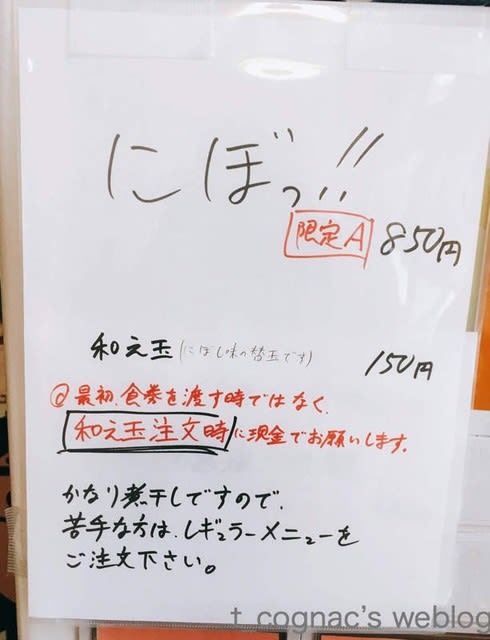 にぼっ!!
限定A 850円
和え玉(にぼし味の替玉です) 150円
@最初、食券を渡す時ではなく、
和え玉注文時に現金でお願いします。
かなり煮干しですので、
苦手な方は、レギュラーメニューを
ご注文下さい。
t cognac's weblog